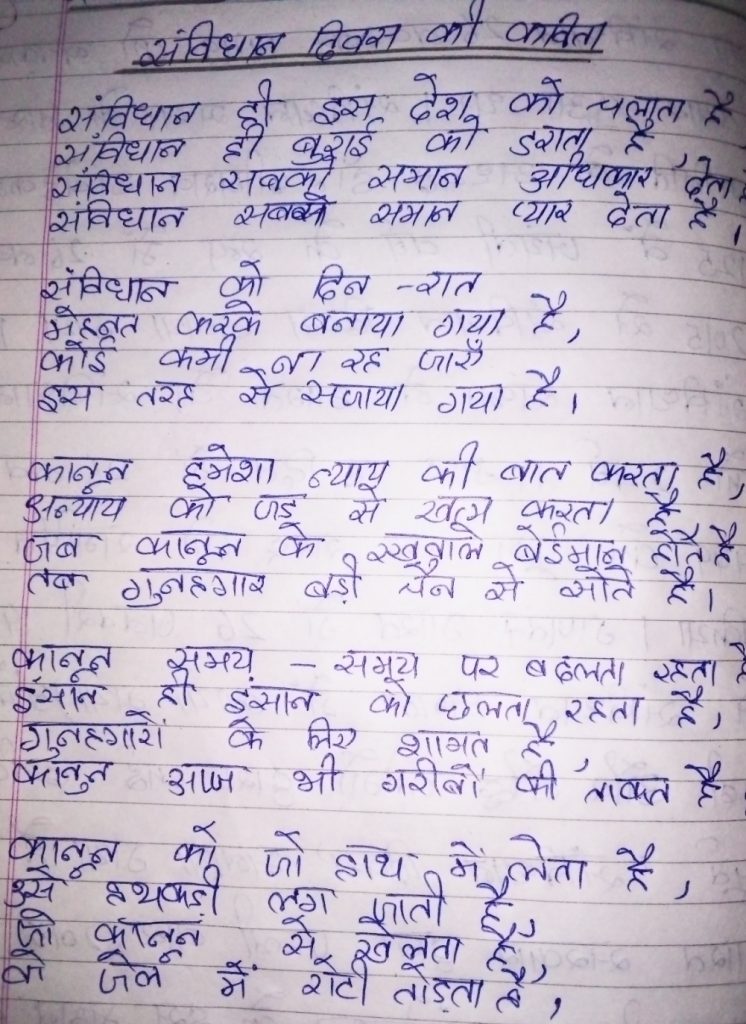 संविधान दिवस की कविता
संविधान ही इस देश को चलाता है
संविधान ही बुराई को डराता है,
संविधान सबको समान अधिकार देता है
संविधान सबको समान प्यार देता है।
संविधान को दिन - रात
मेहनत करके बनाया गया है,
कोई कमी ना रह जाएँ
इस तरह से सजाया गया है।
कानून हमेशा न्याय की बात करता है,
अन्याय को जड़ से खत्म करता है
जब कानून के रखवाले बेईमान होते है
तब गुनहगार बड़ी चैन से सोते है।
कानून समय - समय पर बदलता रहता है
इंसान ही इंसान को छलता रहता है,
गुनहगारों के लिए शामत है,
कानुन आज भी गरीबों की ताकत है
कानून को जो हाथ में लेता है,
उसे हथकड़ी लग जाती है,
जो कानून से खेलता है,
वो जेल में रोटी तोड़ता है,